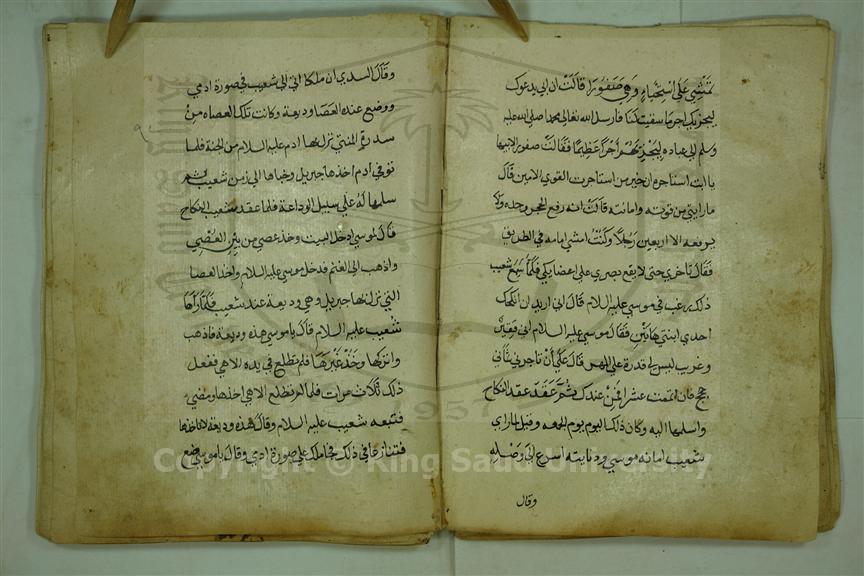 تمشي على استحياء وهي صفورا قالت ان ابي يدعوك
ليجزيك اجر ما سقيت لنا فارسل الله تعالى محمدا صلى الله عليه
وسلم الى عباده ليجزيهم اجرا عظيما فقالت صفورا لابيها
يا ابت استاجره ان خير من استاجرت القوي الامين قال
ما رايتي من قوته وامانته قالت انه رفع الحجر وحده ولا
يرفعه الا اربعين رجلا وكنت امشي امامه في الطريق
فقال تأخري حتى لا يقع بصري على اعضايكي فلما سمع شعيب
ذلك رغب في موسى عليه السلام قال اني اريد ان انكحك
احدى ابنتي هاتين فقال موسى عليه السلام اني فقير
وغريب ليس لي قدرة على المهر قال على أن تاجرني ثماني
حجج فان اتممت عشرا فمن عندك ثم عقد عقد النكاح
واسلمها اليه وكان ذلك اليوم يوم الجمعه وقيل لما راى
شعيب امانه موسى وديانته اسرع الى وصله
وقال
وقال السدي ان ملكا اتى الى شعيب في صورة ادمي
ووضع عنده العصا وديعة وكانت تلك العصاه من
سدرة المنتهى نزل بها ادم عليه السلام من الجنة فلما
توفي ادم اخذها جبريل وخباها الى زمن شعيب ثم
سلمها له على سبيل الوداعة فلما عقد شعيب النكاح
قال لموسى ادخل البيت وخذ عصى من بين العصي
واذهب الى الغنم فدخل موسى عليه السلام واخذ العصا
التي نزل بها جبريل وهي وديعة عند شعيب فلما رآها
شعيب عليه السلام قال يا موسى هذه وديعة فاذهب
واتركها وخذ غيرها فلم تطلع في يده الا هي ففعل
ذلك ثلاث مرات فلما لم تطلع الا هي اخذها ومضى
فتبعه شعيب عليه السلام وقال هذه وديعة لا تاخذها
فتنازعا في ذلك فجا ملك على صورة ادمي وقال يا موسى ضع
Copyright © King Saud University
1957